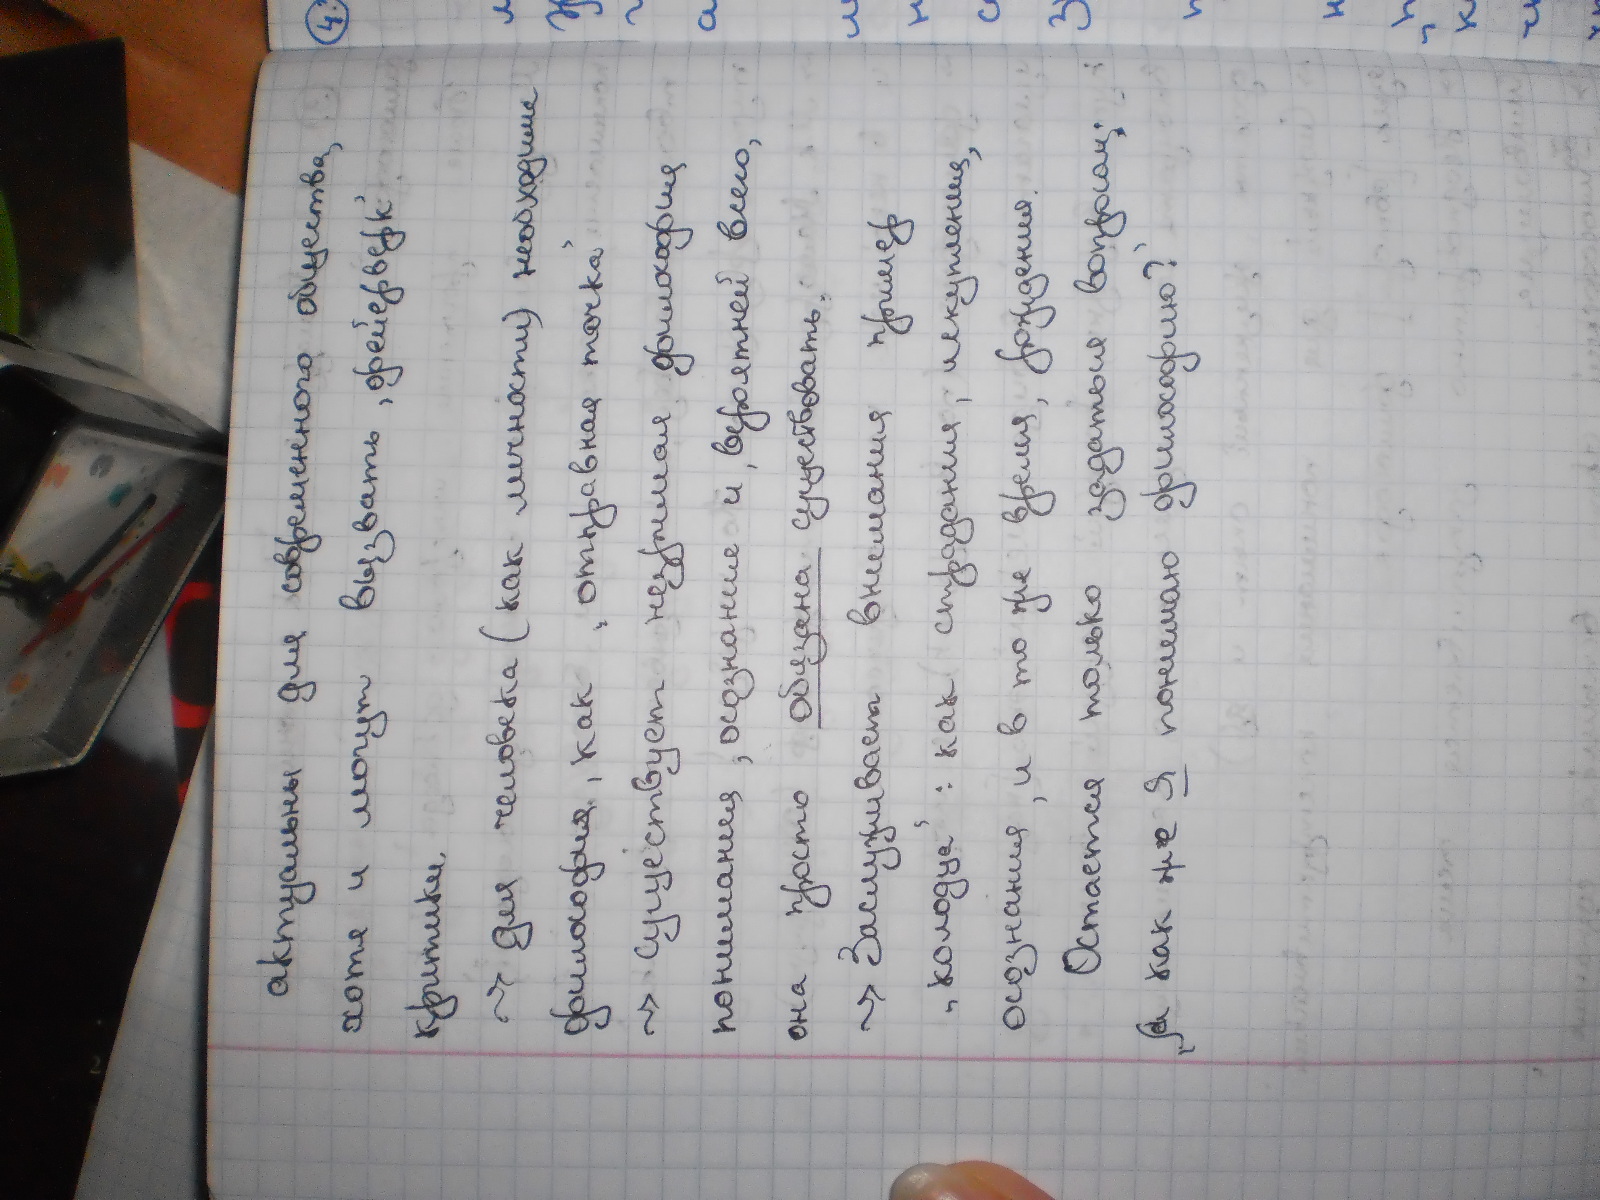 актуальны для современного общества,
хотя и могут вызвать „фейерверк“
критики.
~> Для человека (как личности) необходима
философия, как „отправная точка“
~> Существует незримая философия
понимания, осознание и, вероятней всего,
она просто обязана существовать.
~> Заслуживает внимания пример
„колодца“: как страдания, искупления,
осознания, и в то же время, рождения.
Остается только задаться вопросом:
„А как же Я понимаю философию?“
4.